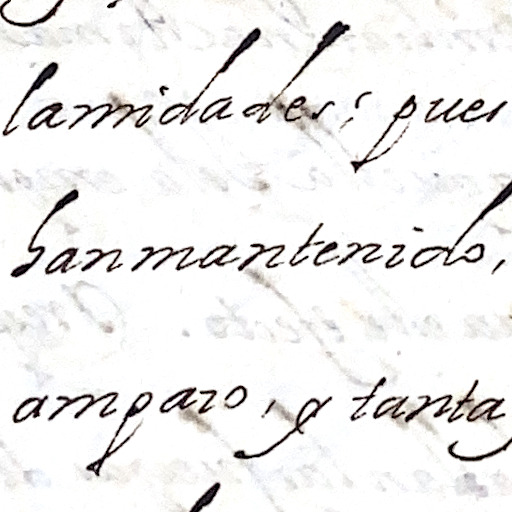 lamidades; pues
han mantenido,
amparo, y tanta